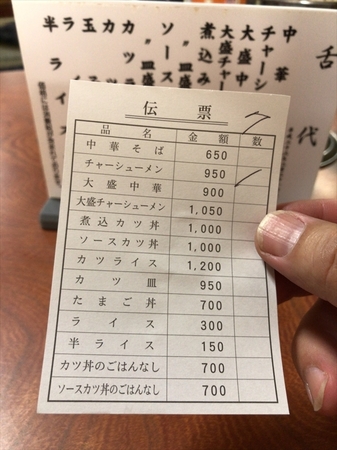 舌代
中華
チャーシ
大盛中
大盛チャー
煮込み
ソース
〃皿盛
カツ
〃皿盛
カツラ
玉
ライ
半ライス
伝票
品名 金額 数
中華そば 650
チャーシューメン 950
大盛中華 900
大盛チャーシューメン 1,050
煮込カツ丼 1,000
ソースカツ丼 1,000
カツライス 1,200
カツ皿 950
たまご丼 700
ライス 300
半ライス 150
カツ丼のごはんなし 700
ソースカツ丼のごはんなし 700